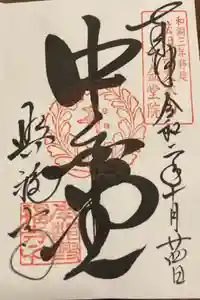 和銅三年移建
中金堂院
奉拝 令和二年十月廿四日
中金堂
興福寺